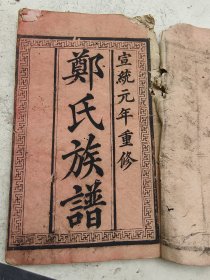 宣統元年重修
鄭氏族譜